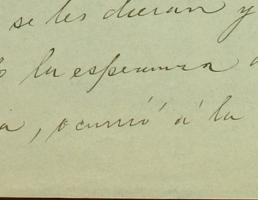 se les dieran y
la esperanza
, ocurrió á la